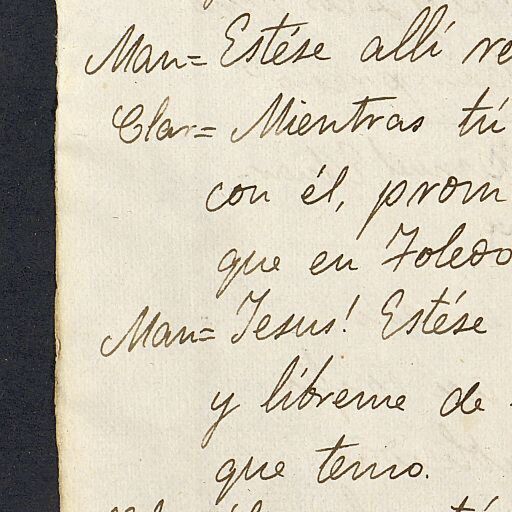 Man= Estése allí re
Clar= Mientras tú
con él, prom
que en Toledo
Man= Jesus! Estése
y líbreme de
que temo.